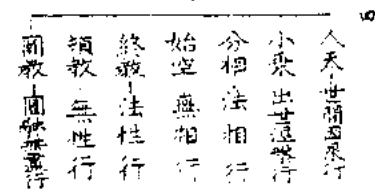 人天－世間因果行
小乘 出世行
分相 法相行
始空 無相行
終教－法性行
頓教－無性行
圓教－圓融無盡行